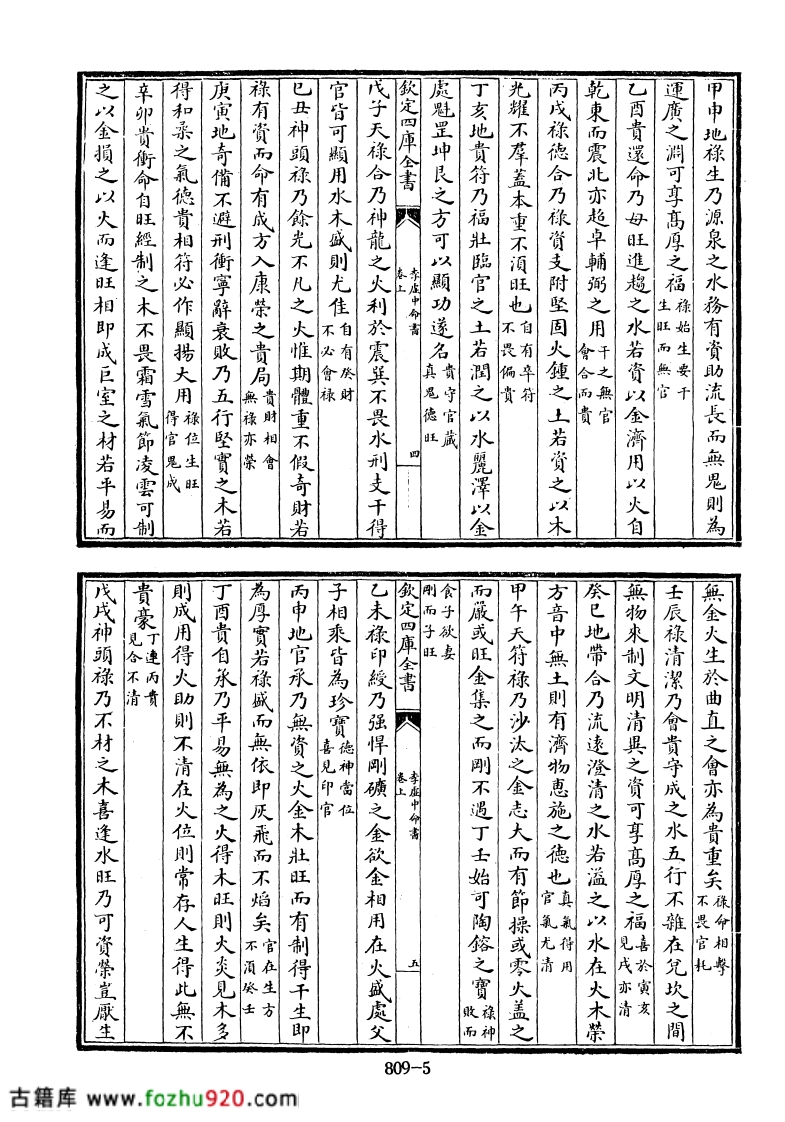 甲申地祿生乃源泉之水務有資助流長而無鬼則為
運廣之淵可享髙厚之福祿始生要干生旺而無官
乙酉貴還命乃母旺進趨之水若資以金濟用以火自
乾東而震北亦超卓輔弼之用干之無官會合而貴
丙戌祿德合乃祿資支附堅固火鍾之土若資之以木
光耀不羣蓋本重不湏旺也自有卒符不畏偏貴
丁亥地貴符乃福壯臨官之土若潤之以水麗澤以金
處魁罡坤艮之方可以顯功遂名貴守官藏真鬼德旺
欽定四庫全書
李虛中命書
卷上
四
戊子天祿合乃神龍之火利於震巽不畏水刑支干得
官皆可顯用水木盛則尤佳自有癸財不必會祿
己丑神頭祿乃餘光不凡之火惟期體重不假奇財若
祿有資而命有成方入康榮之貴局貴財相會無祿亦榮
庚寅地奇備不避刑衝寧辭衰敗乃五行堅實之木若
得和柔之氣德貴相符必作顯揚大用祿位生旺得官鬼成
辛卯貴衝命自旺經制之木不畏霜雪氣節凌雲可制
之以金損之以火而逢旺相即成巨室之材若平易而
無金火生於曲直之會亦為貴重矣祿命相擊不畏官耗
壬辰祿清潔乃會貴守成之水五行不雜在兌坎之間
無物來制文明清異之資可享髙厚之福喜於寅亥見戌亦清
癸巳地帶合乃流遠澄清之水若溢之以水在火木榮
方音中無土則有濟物惠施之德也真氣得用官氣尤清
甲午天符祿乃沙汰之金志大而有節操或零火盖之
而嚴或旺金集之而剛不遇丁壬始可陶鎔之寶祿神敗而
食子欲妻剛而子旺
欽定四庫全書
李虛中命書
卷上
五
乙未祿印綬乃强悍剛礦之金欲金相用在火盛處父
子相乘皆為珍寶德神當位喜見印官
丙申地官承乃無資之火金木壯旺而有制得干生即
為厚實若祿盛而無依即灰飛而不焰矣官在生方不湏癸壬
丁酉貴自承乃平易無為之火得木旺則火炎見木多
則成用得火助則不清在火位則常存人生得此無不
貴豪丁連丙貴見合不清
戊戌神頭祿乃不材之木喜逢水旺乃可資榮豈厭生
809-5
古籍库 www.fozhu920.com